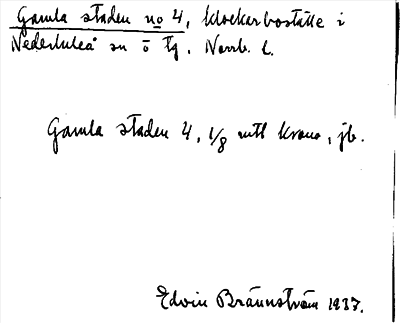 Gamla staden no 4, klockarboställe i
Nederluleå sn ö tg. Norrb. l.
Gamla staden 4, 1/8 mtl krono, jb.
Edvin Brännström 1937.